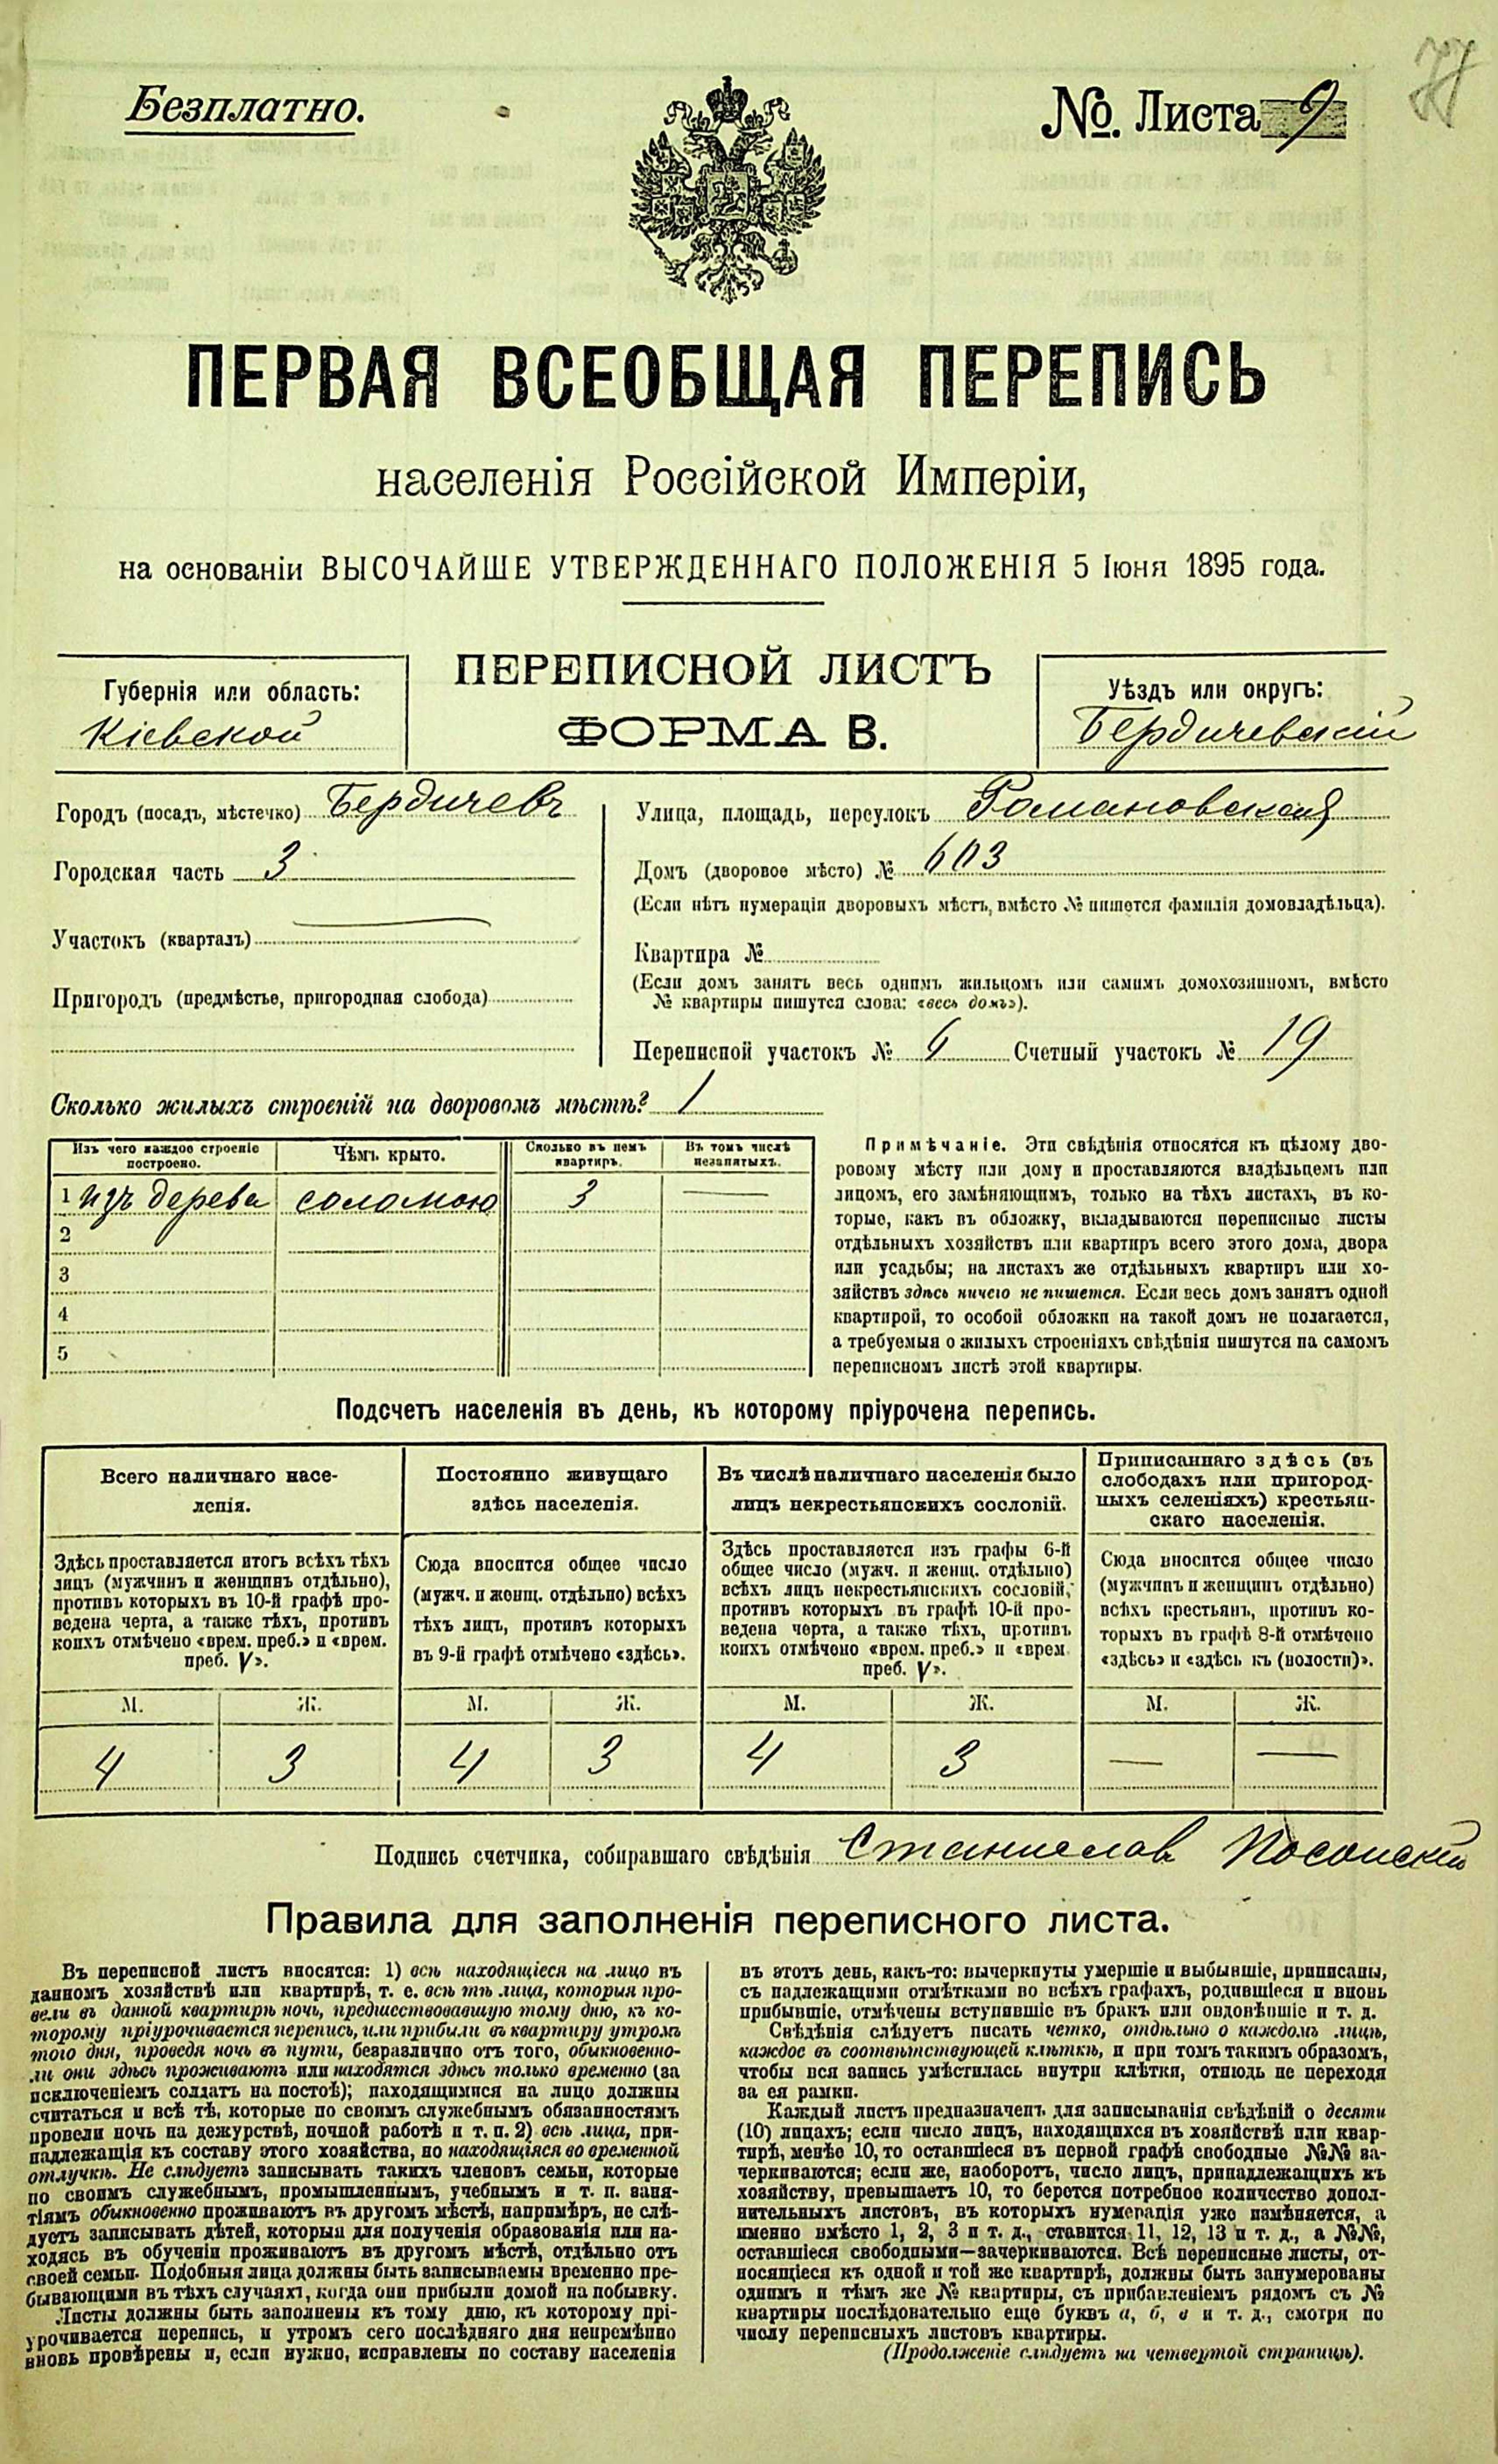 Безплатно.
№. Листа 9
ПЕРВАЯ ВСЕОБЩАЯ ПЕРЕПИСЬ
населенія Россійской Имперіи,
на основаніи ВЫСОЧАЙШЕ УТВЕРЖДЕННАГО ПОЛОЖЕНІЯ 5 Іюня 1895 года.
ПЕРЕПИСНОЙ ЛИСТЪ
ФОРМА В.
Губернія или область:
Кіевской
Уѣздъ или округъ:
Бердичевскій
Городъ (посадъ, мѣстечко) Бердичевъ
Городская часть 3
Участокъ (кварталъ)
Пригородъ (предмѣстье, пригородная слобода)
Улица, площадь, переулокъ Романовская
Домъ (дворовое мѣсто) № 603
(Если нѣтъ нумераціи дворовыхъ мѣстъ, вмѣсто № пишется фамилія домовладѣльца).
Квартира №
(Если домъ занятъ весь однимъ жильцомъ или самимъ домохозяиномъ, вмѣсто
№ квартиры пишутся слова: «весь домъ»).
Переписной участокъ № 6 Счетный участокъ № 19
Сколько жилыхъ строеній на дворовомъ мѣстѣ? 1
Изъ чего каждое строеніе
построено.
Чѣмъ крыто.
Сколько въ немъ
квартиръ.
Въ томъ числѣ
незанятыхъ.
1 изъ дерева соломою 3 —
2
3
4
5
Примѣчаніе. Эти свѣдѣнія относятся къ цѣлому дво-
ровому мѣсту или дому и проставляются владѣльцемъ или
лицомъ, его замѣняющимъ, только на тѣхъ листахъ, въ ко-
торые, какъ въ обложку, вкладываются переписные листы
отдѣльныхъ хозяйствъ или квартиръ всего этого дома, двора
или усадьбы; на листахъ же отдѣльныхъ квартиръ или хо-
зяйствъ здѣсь ничего не пишется. Если весь домъ занятъ одной
квартирой, то особой обложки на такой домъ не полагается,
а требуемыя о жилыхъ строеніяхъ свѣдѣнія пишутся на самомъ
переписномъ листѣ этой квартиры.
Подсчетъ населенія въ день, къ которому пріурочена перепись.
Всего наличнаго насе-
ленія.
Здѣсь проставляется итогъ всѣхъ тѣхъ
лицъ (мужчинъ и женщинъ отдѣльно),
противъ которыхъ въ 10-й графѣ про-
ведена черта, а также тѣхъ, противъ
коихъ отмѣчено «врем. преб.» и «врем.
преб. V».
Постоянно живущаго
здѣсь населенія.
Сюда вносится общее число
(мужч. и женщ. отдѣльно) всѣхъ
тѣхъ лицъ, противъ которыхъ
въ 9-й графѣ отмѣчено «здѣсь».
Въ числѣ наличнаго населенія было
лицъ некрестьянскихъ сословій.
Здѣсь проставляется изъ графы 6-й
общее число (мужч. и женщ. отдѣльно)
всѣхъ лицъ некрестьянскихъ сословій,
противъ которыхъ въ графѣ 10-й про-
ведена черта, а также тѣхъ, противъ
коихъ отмѣчено «врем. преб.» и «врем.
преб. V».
Приписаннаго здѣсь (въ
слободахъ или пригород-
ныхъ селеніяхъ) крестьян-
скаго населенія.
Сюда вносится общее число
(мужчинъ и женщинъ отдѣльно)
всѣхъ крестьянъ, противъ ко-
торыхъ въ графѣ 8-й отмѣчено
«здѣсь» и «здѣсь къ (волости)».
М. Ж. М. Ж. М. Ж. М. Ж.
4 3 4 3 4 3 — —
Подпись счетчика, собиравшаго свѣдѣнія Станиславъ
Правила для заполненія переписного листа.
Въ переписной листъ вносятся: 1) всѣ находящіеся на лицо въ
данномъ хозяйствѣ или квартирѣ, т. е. всѣ тѣ лица, которыя про-
вели въ данной квартирѣ ночь, предшествовавшую тому дню, къ ко-
торому пріурочивается перепись, или прибыли въ квартиру утромъ
того дня, проведя ночь въ пути, безразлично отъ того, обыкновенно-
ли они здѣсь проживаютъ или находятся здѣсь только временно (за
исключеніемъ солдатъ на постоѣ); находящимися на лицо должны
считаться и всѣ тѣ, которые по своимъ служебнымъ обязанностямъ
провели ночь на дежурствѣ, ночной работѣ и т. п. 2) всѣ лица, при-
надлежащія къ составу этого хозяйства, но находящіяся во временной
отлучкѣ. Не слѣдуетъ записывать такихъ членовъ семьи, которые
по своимъ служебнымъ, промышленнымъ, учебнымъ и т. п. заня-
тіямъ обыкновенно проживаютъ въ другомъ мѣстѣ, напримѣръ, не слѣ-
дуетъ записывать дѣтей, которыя для полученія образованія или на-
ходясь въ обученіи проживаютъ въ другомъ мѣстѣ, отдѣльно отъ
своей семьи. Подобныя лица должны быть записываемы временно пре-
бывающими въ тѣхъ случаяхъ, когда они прибыли домой на побывку.
Листы должны быть заполнены къ тому дню, къ которому прі-
урочивается перепись, и утромъ сего послѣдняго дня непремѣнно
вновь провѣрены и, если нужно, исправлены по составу населенія
въ этотъ день, какъ-то: вычеркнуты умершіе и выбывшіе, приписаны,
съ надлежащими отмѣтками во всѣхъ графахъ, родившіеся и вновь
прибывшіе, отмѣчены вступившіе въ бракъ или овдовѣвшіе и т. д.
Свѣдѣнія слѣдуетъ писать четко, отдѣльно о каждомъ лицѣ,
каждое въ соотвѣтствующей клѣткѣ, и при томъ такимъ образомъ,
чтобы вся запись умѣстилась внутри клѣтки, отнюдь не переходя
за ея рамки.
Каждый листъ предназначенъ для записыванія свѣдѣній о десяти
(10) лицахъ; если число лицъ, находящихся въ хозяйствѣ или квар-
тирѣ, менѣе 10, то оставшіеся въ первой графѣ свободные №№ за-
черкиваются; если же, наоборотъ, число лицъ, принадлежащихъ къ
хозяйству, превышаетъ 10, то берется потребное количество допол-
нительныхъ листовъ, въ которыхъ нумерація уже измѣняется, а
именно вмѣсто 1, 2, 3 и т. д., ставится 11, 12, 13 и т. д., а №№,
оставшіеся свободными—зачеркиваются. Всѣ переписные листы, от-
носящіеся къ одной и той же квартирѣ, должны быть занумерованы
однимъ и тѣмъ же № квартиры, съ прибавленіемъ рядомъ съ №
квартиры послѣдовательно еще буквъ а, б, в и т. д., смотря по
числу переписныхъ листовъ квартиры.
(Продолженіе слѣдуетъ на четвертой страницѣ).